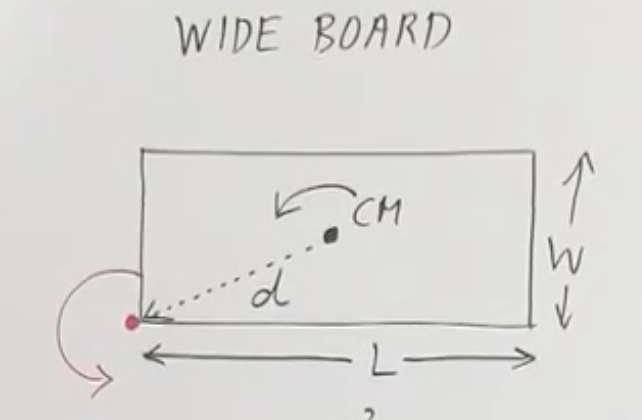 WIDE BOARD
CM
d
W
L